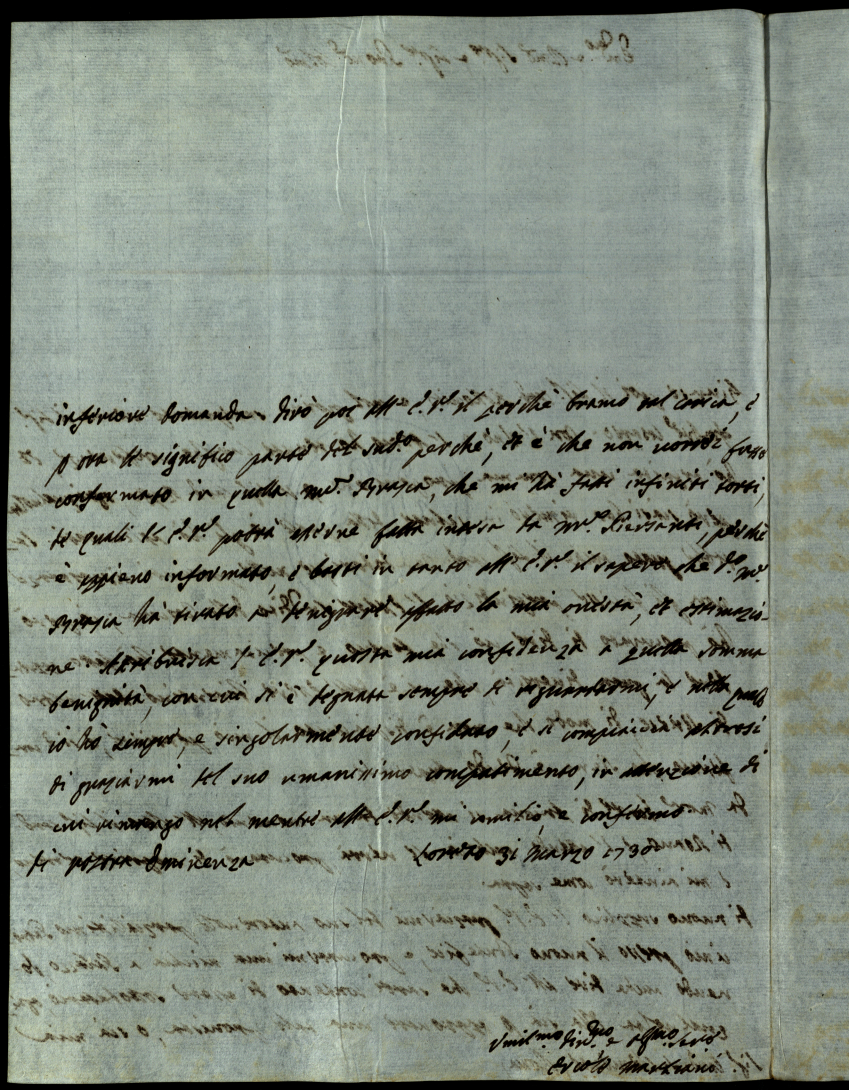 inferiore domanda. dirò poi all' E. V. il perchè bramo tal cosa, e
p ora le significo parte del sud.º perchè, et è che non vorrei fosse
confermato in quella me. Brascia, che mi hà fatti infiniti torti,
le quali l' E. V. potrà esserne fatta intesa da Mr. Piersanti, perchè
è appieno informato, e basti in tanto all' E. V. il sapere, che d.º
Brascia hà tirato a denigrare affatto la mia onestà, et estimazio-
ne. Attribuisca l' E. V. questa mia confidenza a quella somma
benignità, con cui si è degnata sempre di riguardarmi, e nella quale
io hò sempre, e singolarmente confidato, e si compiaccia altresì
di graziarmi del suo umanissimo compatimento, in attenzione di
cui rimango nel mentre all' E. V. mi umilio, e confermo
di Vostra Eminenza Loreto 31 Marzo 1730
Umilmo Divmo e Obmo Serv
Ercole Marziani